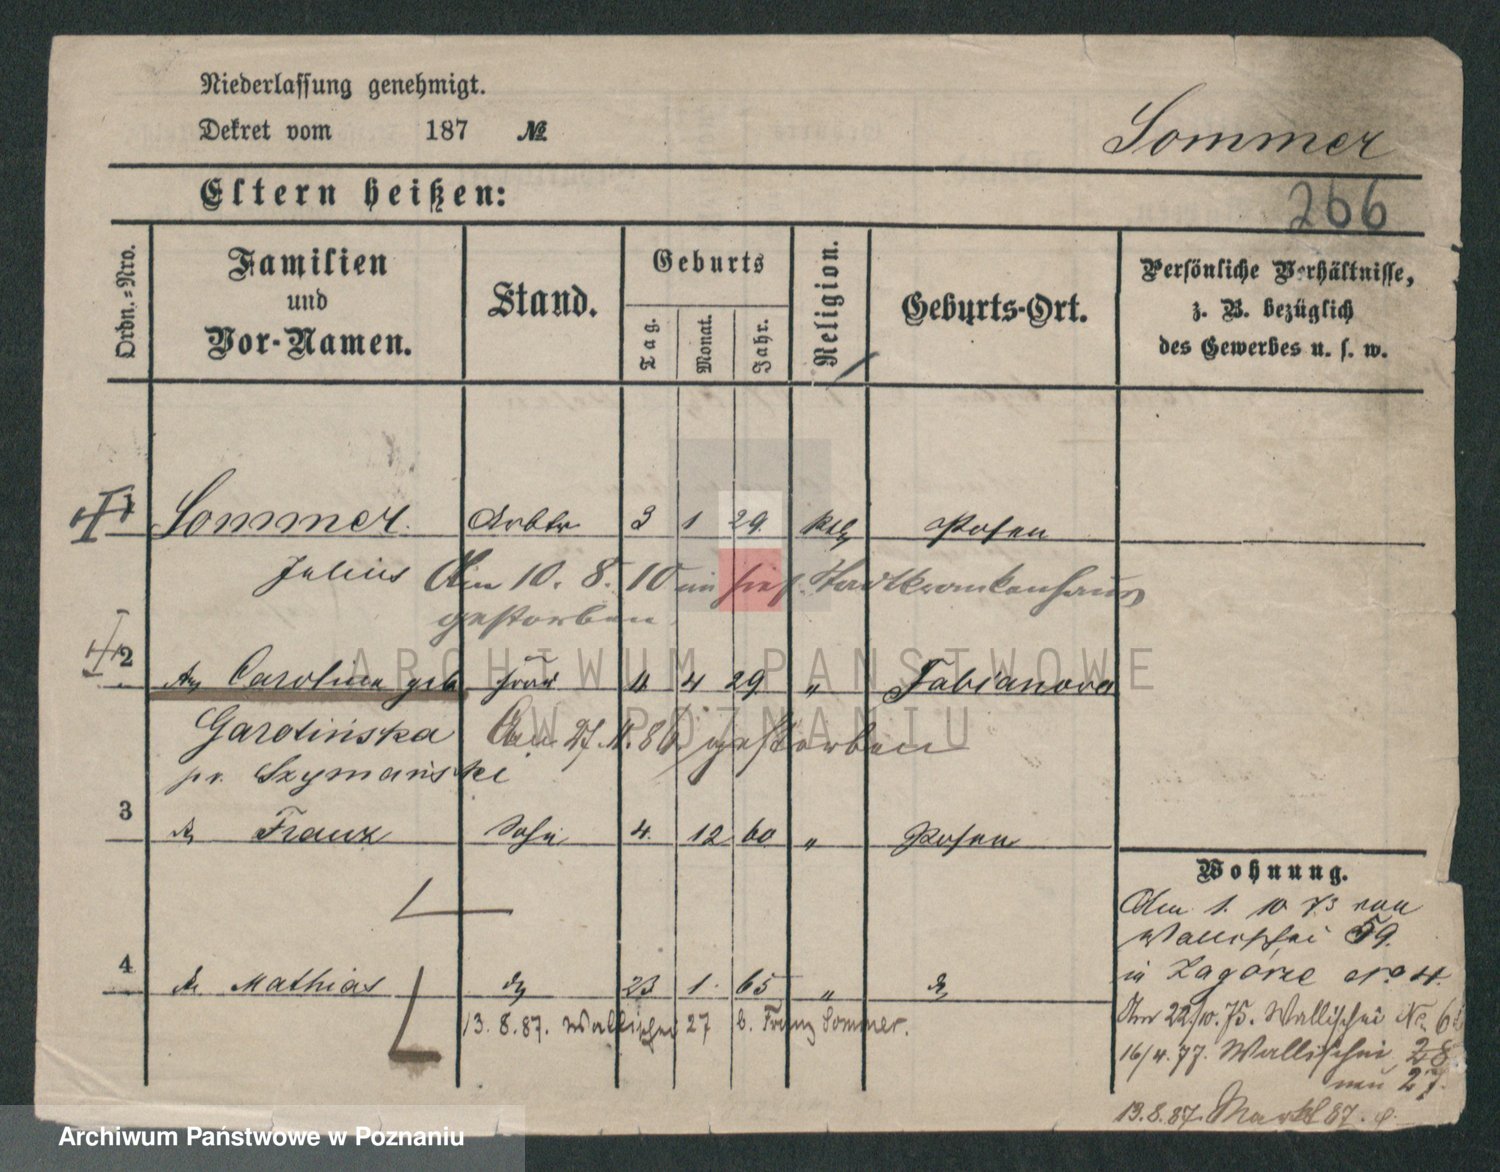 Niederlassung genehmigt.
Dekret vom 187 №
Sommer
Eltern heißen:
266
Ordn.=Nro.
Familien
und
Vor-Namen.
Stand.
Geburts
Tag.
Monat.
Jahr.
Religion.
Geburts-Ort.
Persönliche Verhältnisse,
z. B. bezüglich
des Gewerbes u. s. w.
1 Sommer. Arbtr 3 1 29. Posen
Julius Am 10. 8. 10 im hies. Stadtkrankenhaus
gestorben
2 Carolina geb Frau 4 29. " Fabianowo
Garolinska Am 27. 11. 86 gestorben
pr. Szymański
3 Franz Sohn 4. 12 60 " Posen
4 Mathias 23 1. 65 "
13. 8. 87. Wallischei 27 b. Franz Sommer.
Wohnung.
Am 1. 10 73 von
Wallischei 59.
in Zagórze No 4.
Am 22/10. 75. Wallischei No
16/4. 77. Wallischei 28
neu 27.
13. 8. 87. Markt 87.
ARCHIWUM PAŃSTWOWE
W POZNANIU
Archiwum Państwowe w Poznaniu